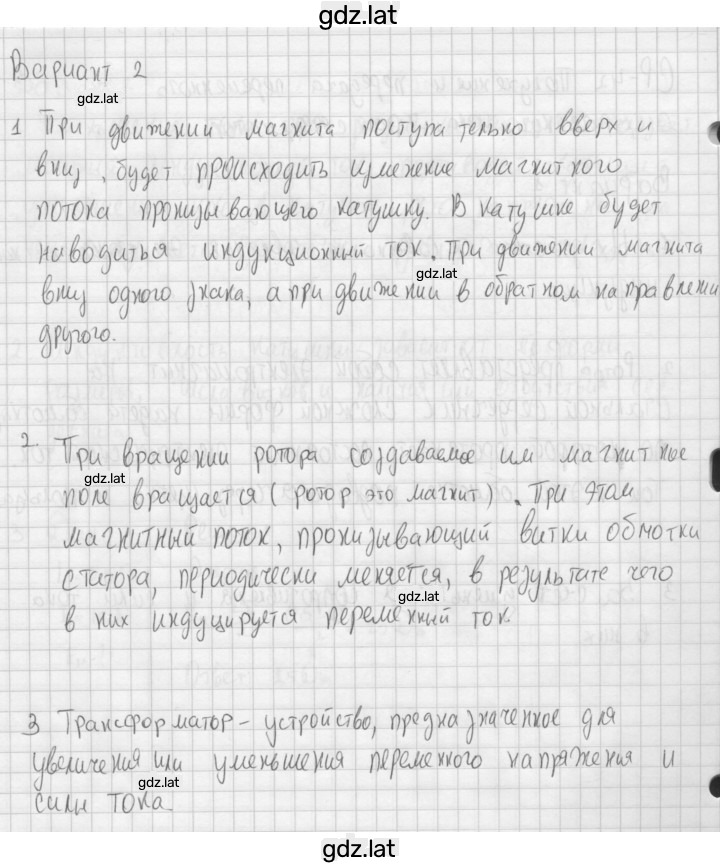 gdz.lat
Вариант 2
gdz.lat
1 При движении магнита поступательно вверх и
вниз, будет происходить изменение магнитного
потока пронизывающего катушку. В катушке будет
наводиться индукционный ток. При движении магнита
gdz.lat
вниз одного знака, а при движении в обратном направлении
другого.
2 При вращении ротора создаваемое им магнитное
gdz.lat
поле вращается (ротор это магнит). При этом
магнитный поток, пронизывающий витки обмотки
статора, периодически меняется, в результате чего
gdz.lat
в них индуцируется переменный ток.
3 Трансформатор - устройство, предназначенное для
увеличения или уменьшения переменного напряжения и
gdz.lat
силы тока.
gdz.lat